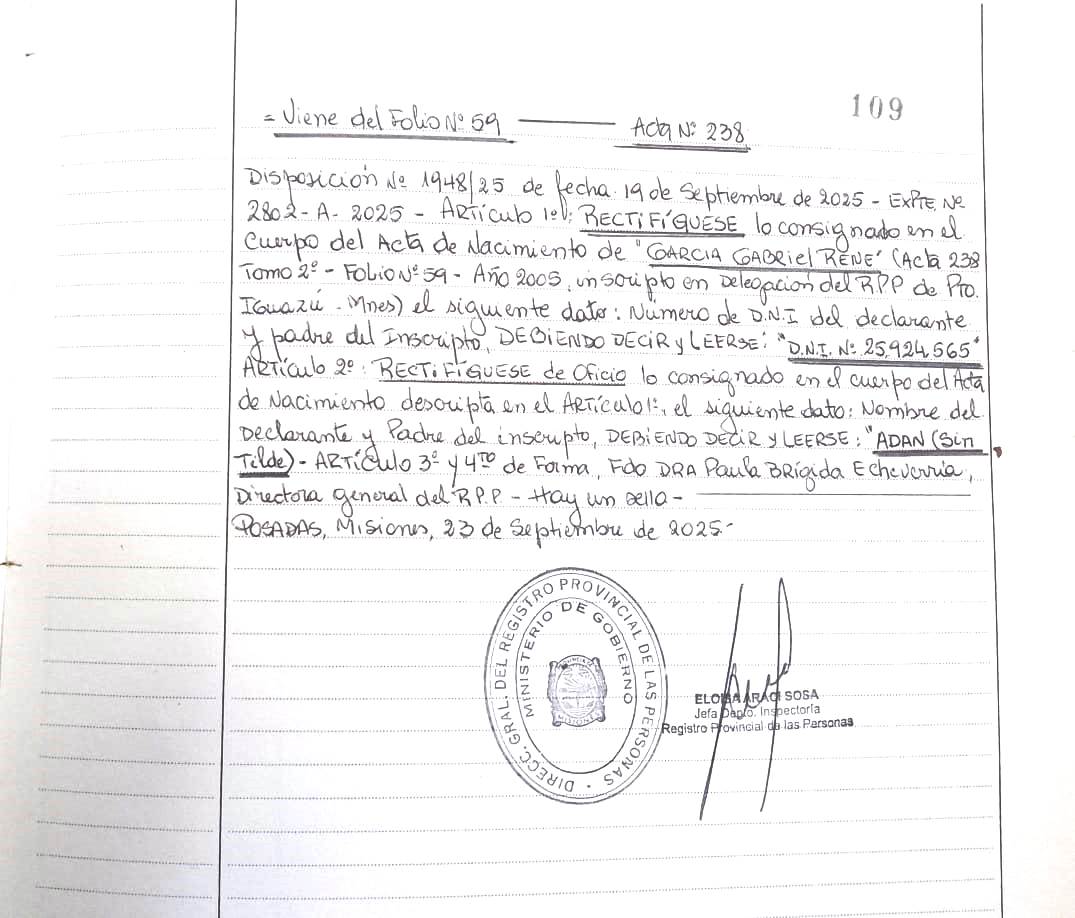 109
= Viene del Folio Nº 59 ——— Acta Nº 238
Disposición Nº 1948/25 de fecha 19 de Septiembre de 2025 - EXPTE. Nº
2802-A-2025 - ARTÍCULO 1º: RECTIFÍQUESE lo consignado en el
Cuerpo del Acta de Nacimiento de "GARCIA GABRIEL RENE" (Acta 238
Tomo 2º - FOLIO Nº 59 - Año 2005, inscripto en Delegación del RPP de Pto.
IGUAZÚ - Mnes) el siguiente dato: Número de D.N.I del declarante
y padre del Inscripto, DEBIENDO DECIR y LEERSE: "D.N.I. Nº 25.924.565"
ARTÍCULO 2º: RECTIFÍQUESE de Oficio lo consignado en el cuerpo del Acta
de Nacimiento descripta en el ARTÍCULO 1º, el siguiente dato: Nombre del
Declarante y Padre del inscripto, DEBIENDO DECIR Y LEERSE: "ADAN (Sin
Tilde) - ARTÍCULO 3º y 4TO de Forma, Fdo DRA Paula BRÍGIDA Echeverria,
Directora general del R.P.P - Hay un sello -
POSADAS, Misiones, 23 de Septiembre de 2025.-
DIRECC. GRAL. DEL REGISTRO PROVINCIAL DE LAS PERSONAS
MINISTERIO DE GOBIERNO
MISIONES
ELOISA ARACI SOSA
Jefa Depto. Inspectoría
Registro Provincial de las Personas